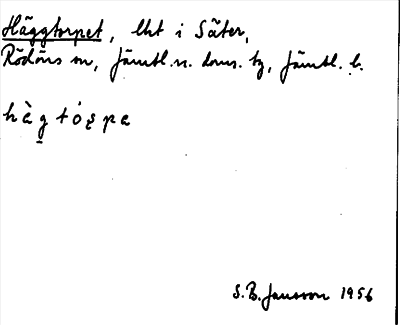 Häggtorpet, lht i Säter,
Rödöns sn, Jämtl. n. doms. tg, Jämtl. l.
hàg̠tórpa
S. B. Jansson 1956